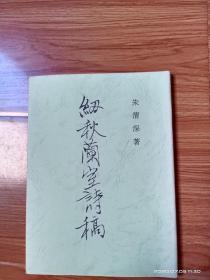 朱深著
紉秋蘭室詩稿